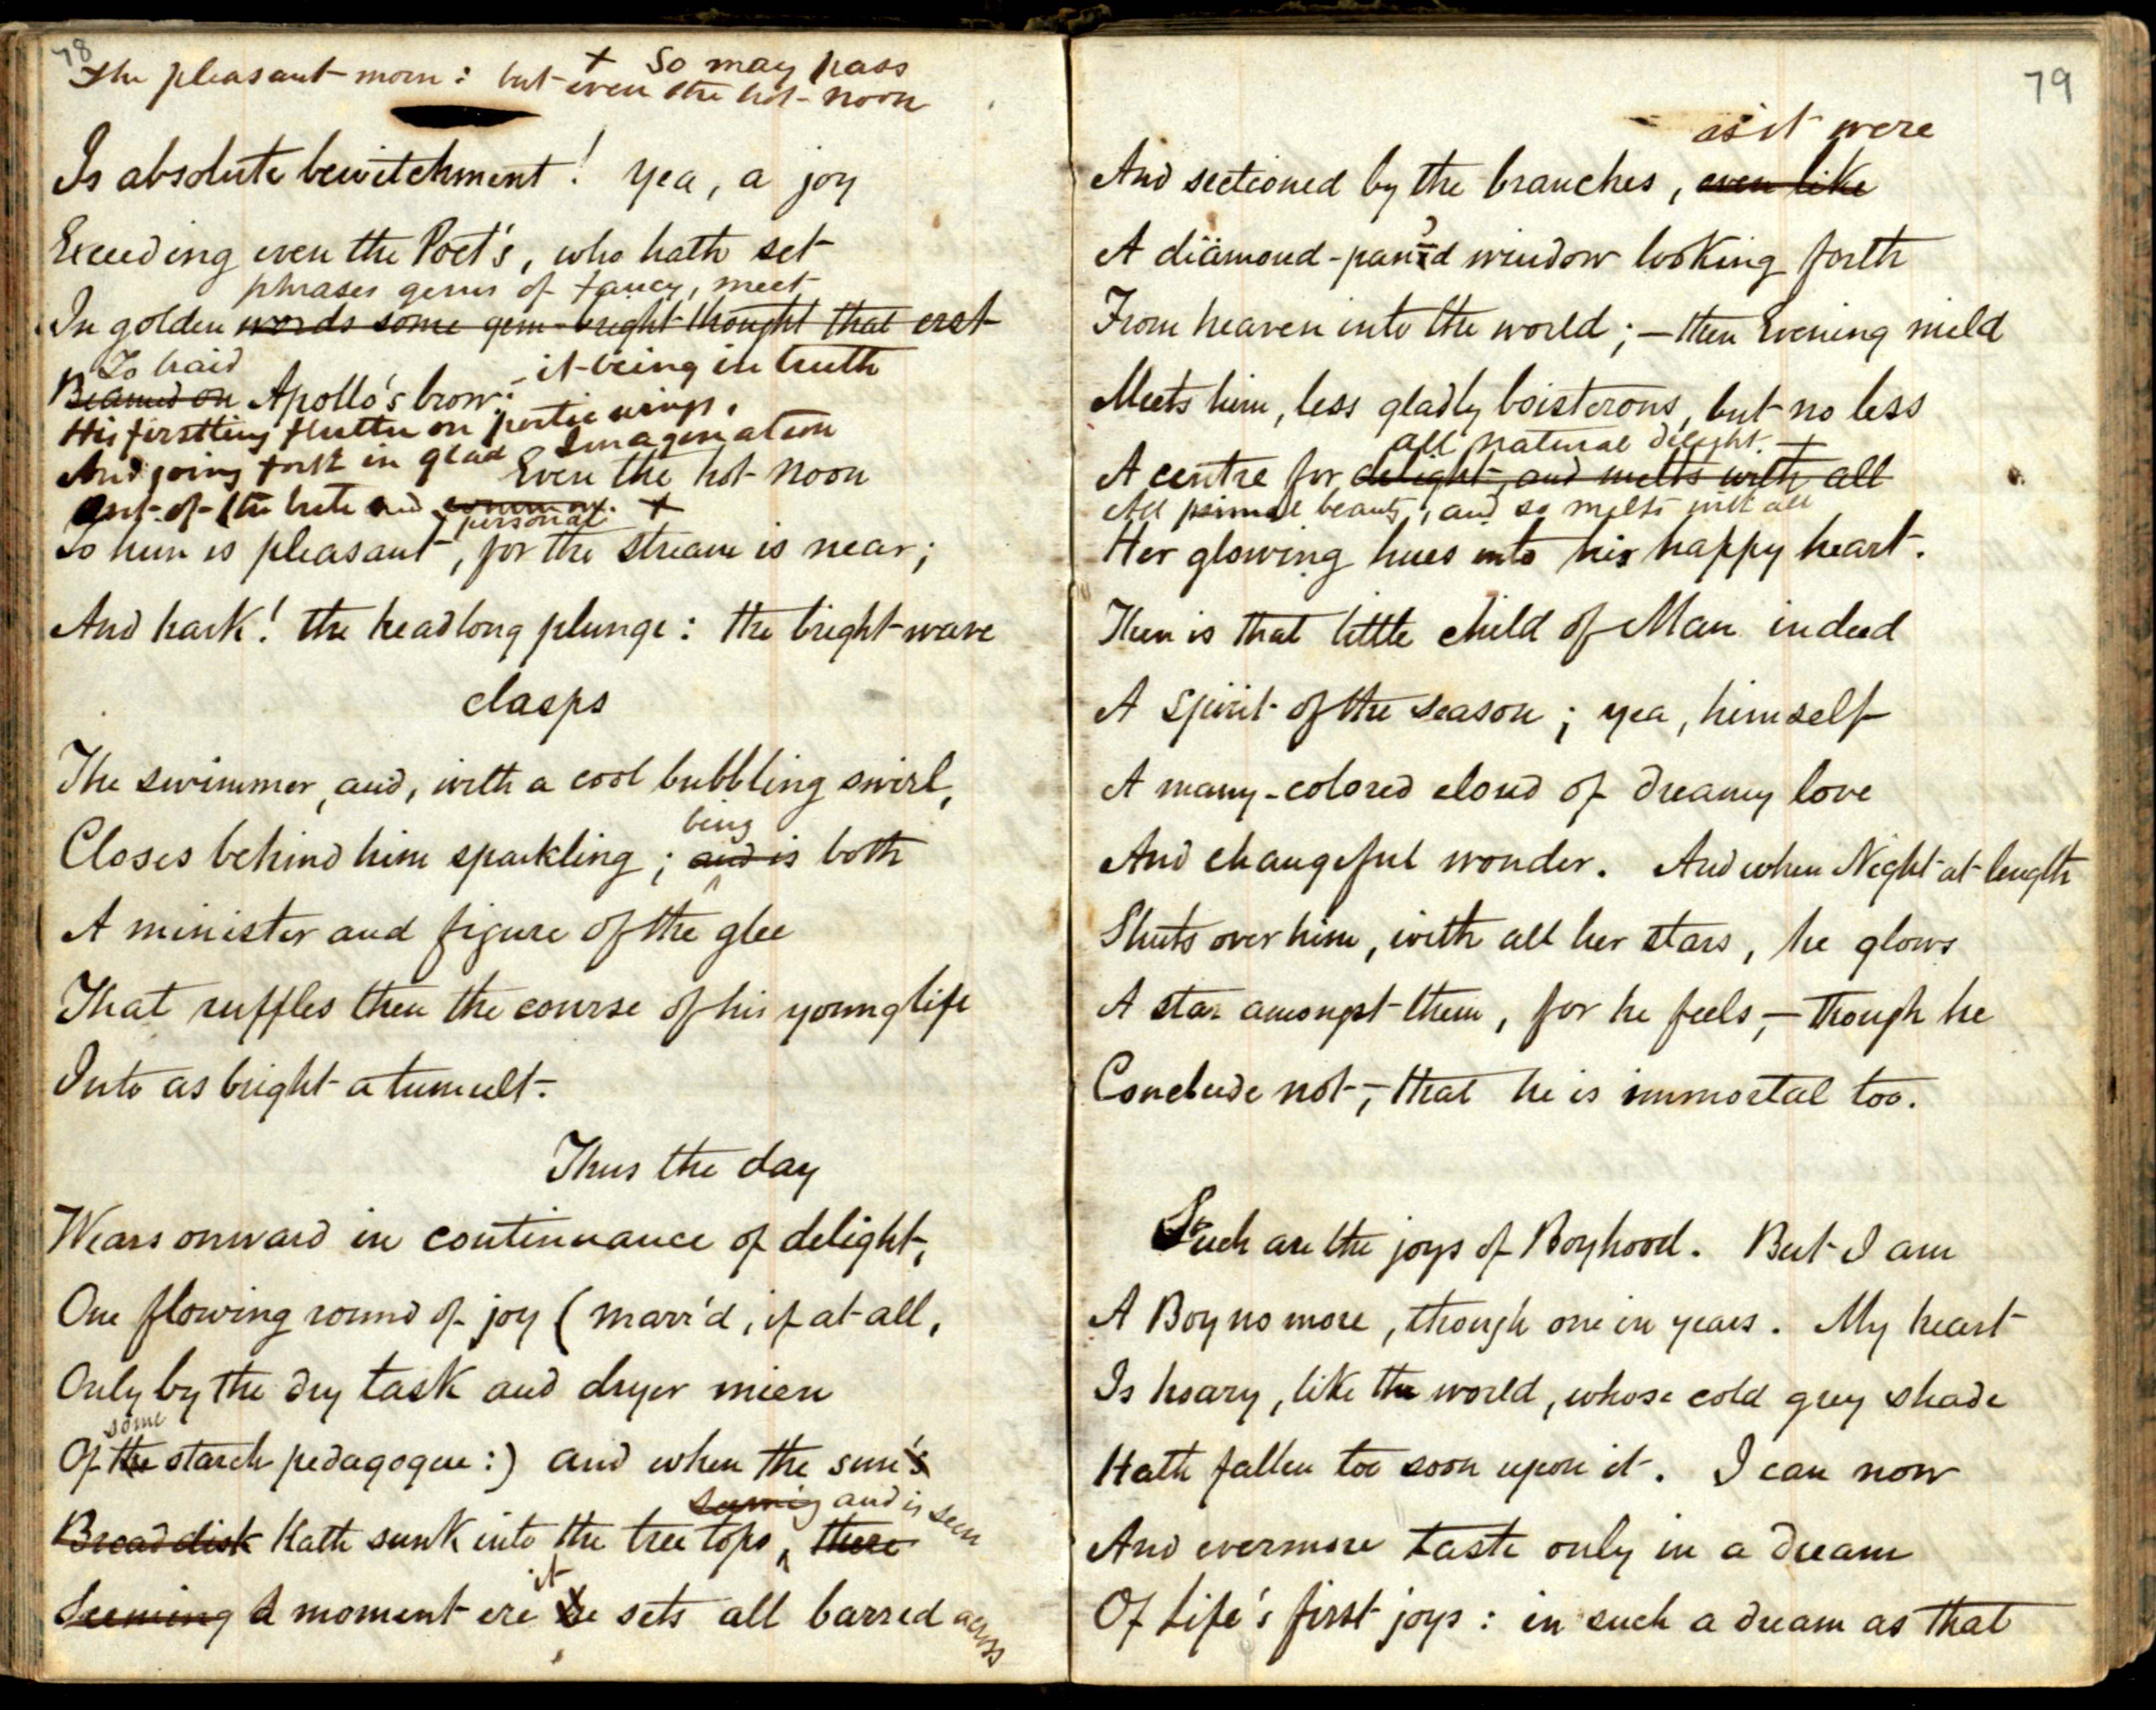 78
+ So may pass
The pleasant morn: but even the hot noon
Is absolute bewitchment! Yea, a joy
Exceeding even the Poet's, who hath set
phrases gems of fancy, meet
In golden words some gem-bright thought that erst
To braid
Beamed on Apollo's brow: — it being in truth
His firstling flutter on poetic wings,
And going forth in glad Imagination
Even the hot noon
Out-of-the brute and common. +
personal
To him is pleasant, for the stream is near;
And hark! the headlong plunge: the bright wave
clasps
The swimmer, and, with a cool bubbling swirl,
being
Closes behind him sparkling; and is both
A minister and figure of the glee
That ruffles then the course of his young life
Into as bright a tumult.
Thus the day
Wears onward in continuance of delight,
One flowing round of joy (marr'd, if at all,
Only by the dry task and dryer mien
some
Of the starch pedagogue:) and when the sun's
seeming and is seen
Broad disk Hath sunk into the tree tops, there
it
Seeming A moment ere he sets all barred across
79
as it were
And sectioned by the branches, even like
A diämond-pan'd window looking forth
From heaven into the world; — then Evening mild
Meets him, less gladly boisterous, but no less
all natural delight. +
A centre for delight, and melts with all
All primal beauty, and so melts with all
Her glowing hues into his happy heart.
Then is that little child of Man indeed
A spirit of the season; yea, himself
A many-colored cloud of dreamy love
And changeful wonder. And when Night at length
Shuts over him, with all her stars, he glows
A star amongst them, for he feels, — though he
Conclude not, — that he is immortal too.
Such are the joys of Boyhood. But I am
A Boy no more, though one in years. My heart
Is hoary, like the world, whose cold grey shade
Hath fallen too soon upon it. I can now
And evermore taste only in a dream
Of Life's first joys: in such a dream as that